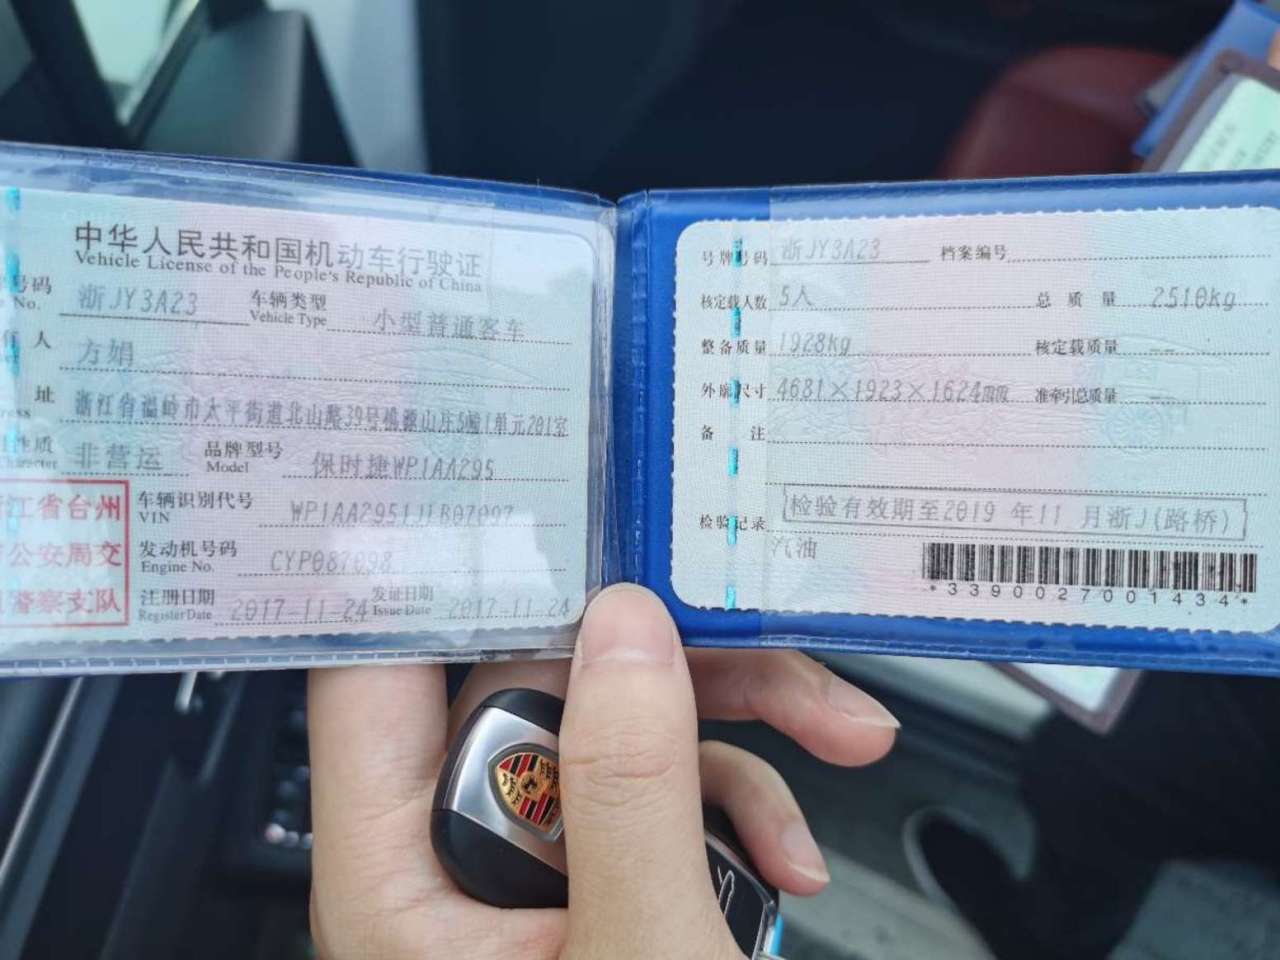 中华人民共和国机动车行驶证
Vehicle License of the People's Republic of China
号码 浙JY3A23 车辆类型 小型普通客车
No. Vehicle Type
人 方娟
址 浙江省温岭市太平街道北山路39号桃源山庄5幢1单元201室
性质 非营运 品牌型号 保时捷WP1AA295
Character Model
江省台州
公安局交
警察支队
车辆识别代号 WP1AA2951JLB07097
VIN
发动机号码 CYP087098
Engine No.
注册日期 2017-11-24 发证日期 2017-11-24
Register Date Issue Date
号牌号码 浙JY3A23 档案编号
核定载人数 5人 总质量 2510kg
整备质量 1928kg 核定载质量 --
外廓尺寸 4681×1923×1624mm 准牵引总质量 --
备注
检验有效期至2019年11月浙J(路桥)
检验记录
汽油
*3390027001434*